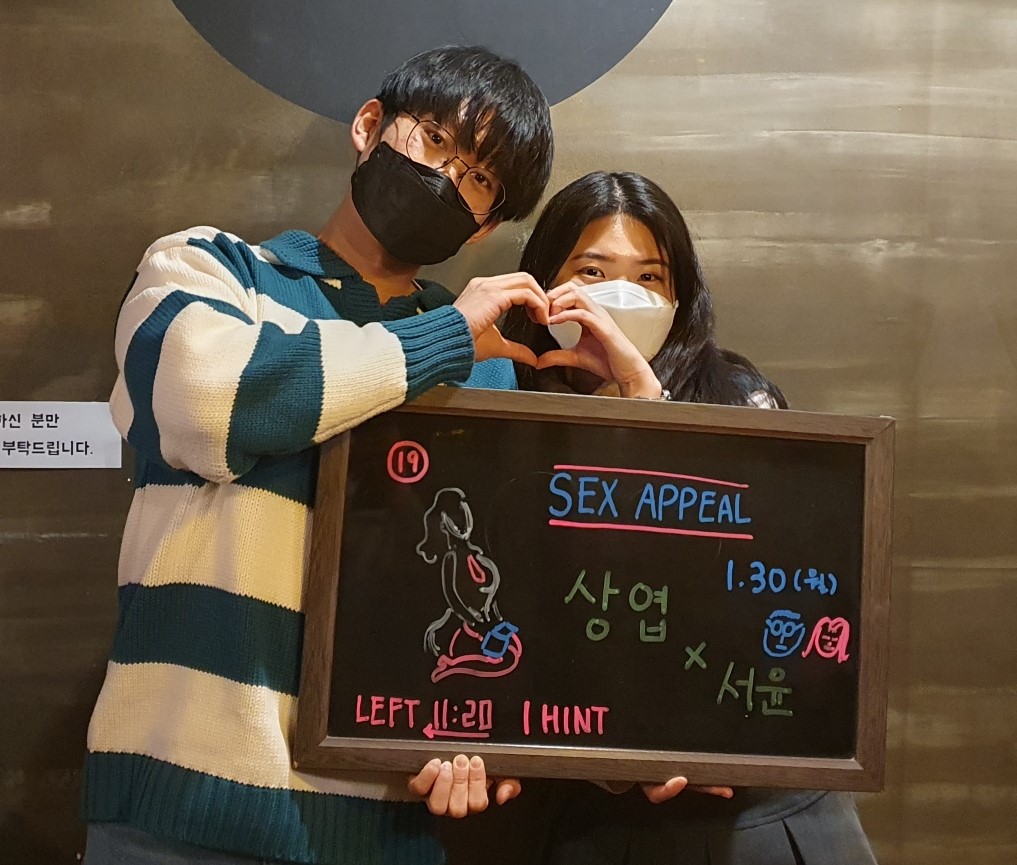 하신 분만
부탁드립니다.
19
SEX APPEAL
1.30(월)
상엽
x
서윤
LEFT 11:20 1 HINT